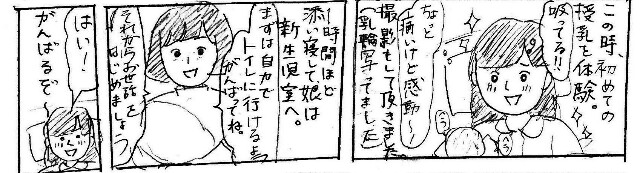 この時、初めての
授乳を体験。
吸ってる!!
など
痛いけど感動〜
撮影もして頂きました
(乳輪写ってました)
1時間ほど
添い寝して、娘は
新生児室へ。
まずは自力で
トイレに行けるよう
がんばってね。
それからお世話を
はじめましょう
はい!
がんばるぞ〜